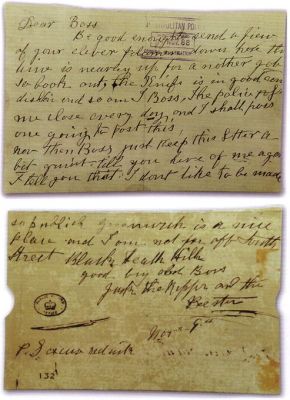 Dear Boss
Be good enough send a few
of your clever down here the
time is nearly up for a nother job
So look out, the Knife is in good con
dition and so am I Boss, The police pass
me close every day, and I shall pass
one going to Post this,
now then Boss just keep this letter a
bit quiet till you have of me again
I tell you that I dont like to be made
so publick greenwich is a nice
place and I am not far off South
Street Black Heath Hill
good bye old Boss
Jack the Ripper and the
P.S. excuse red ink
132
POLITAN PO